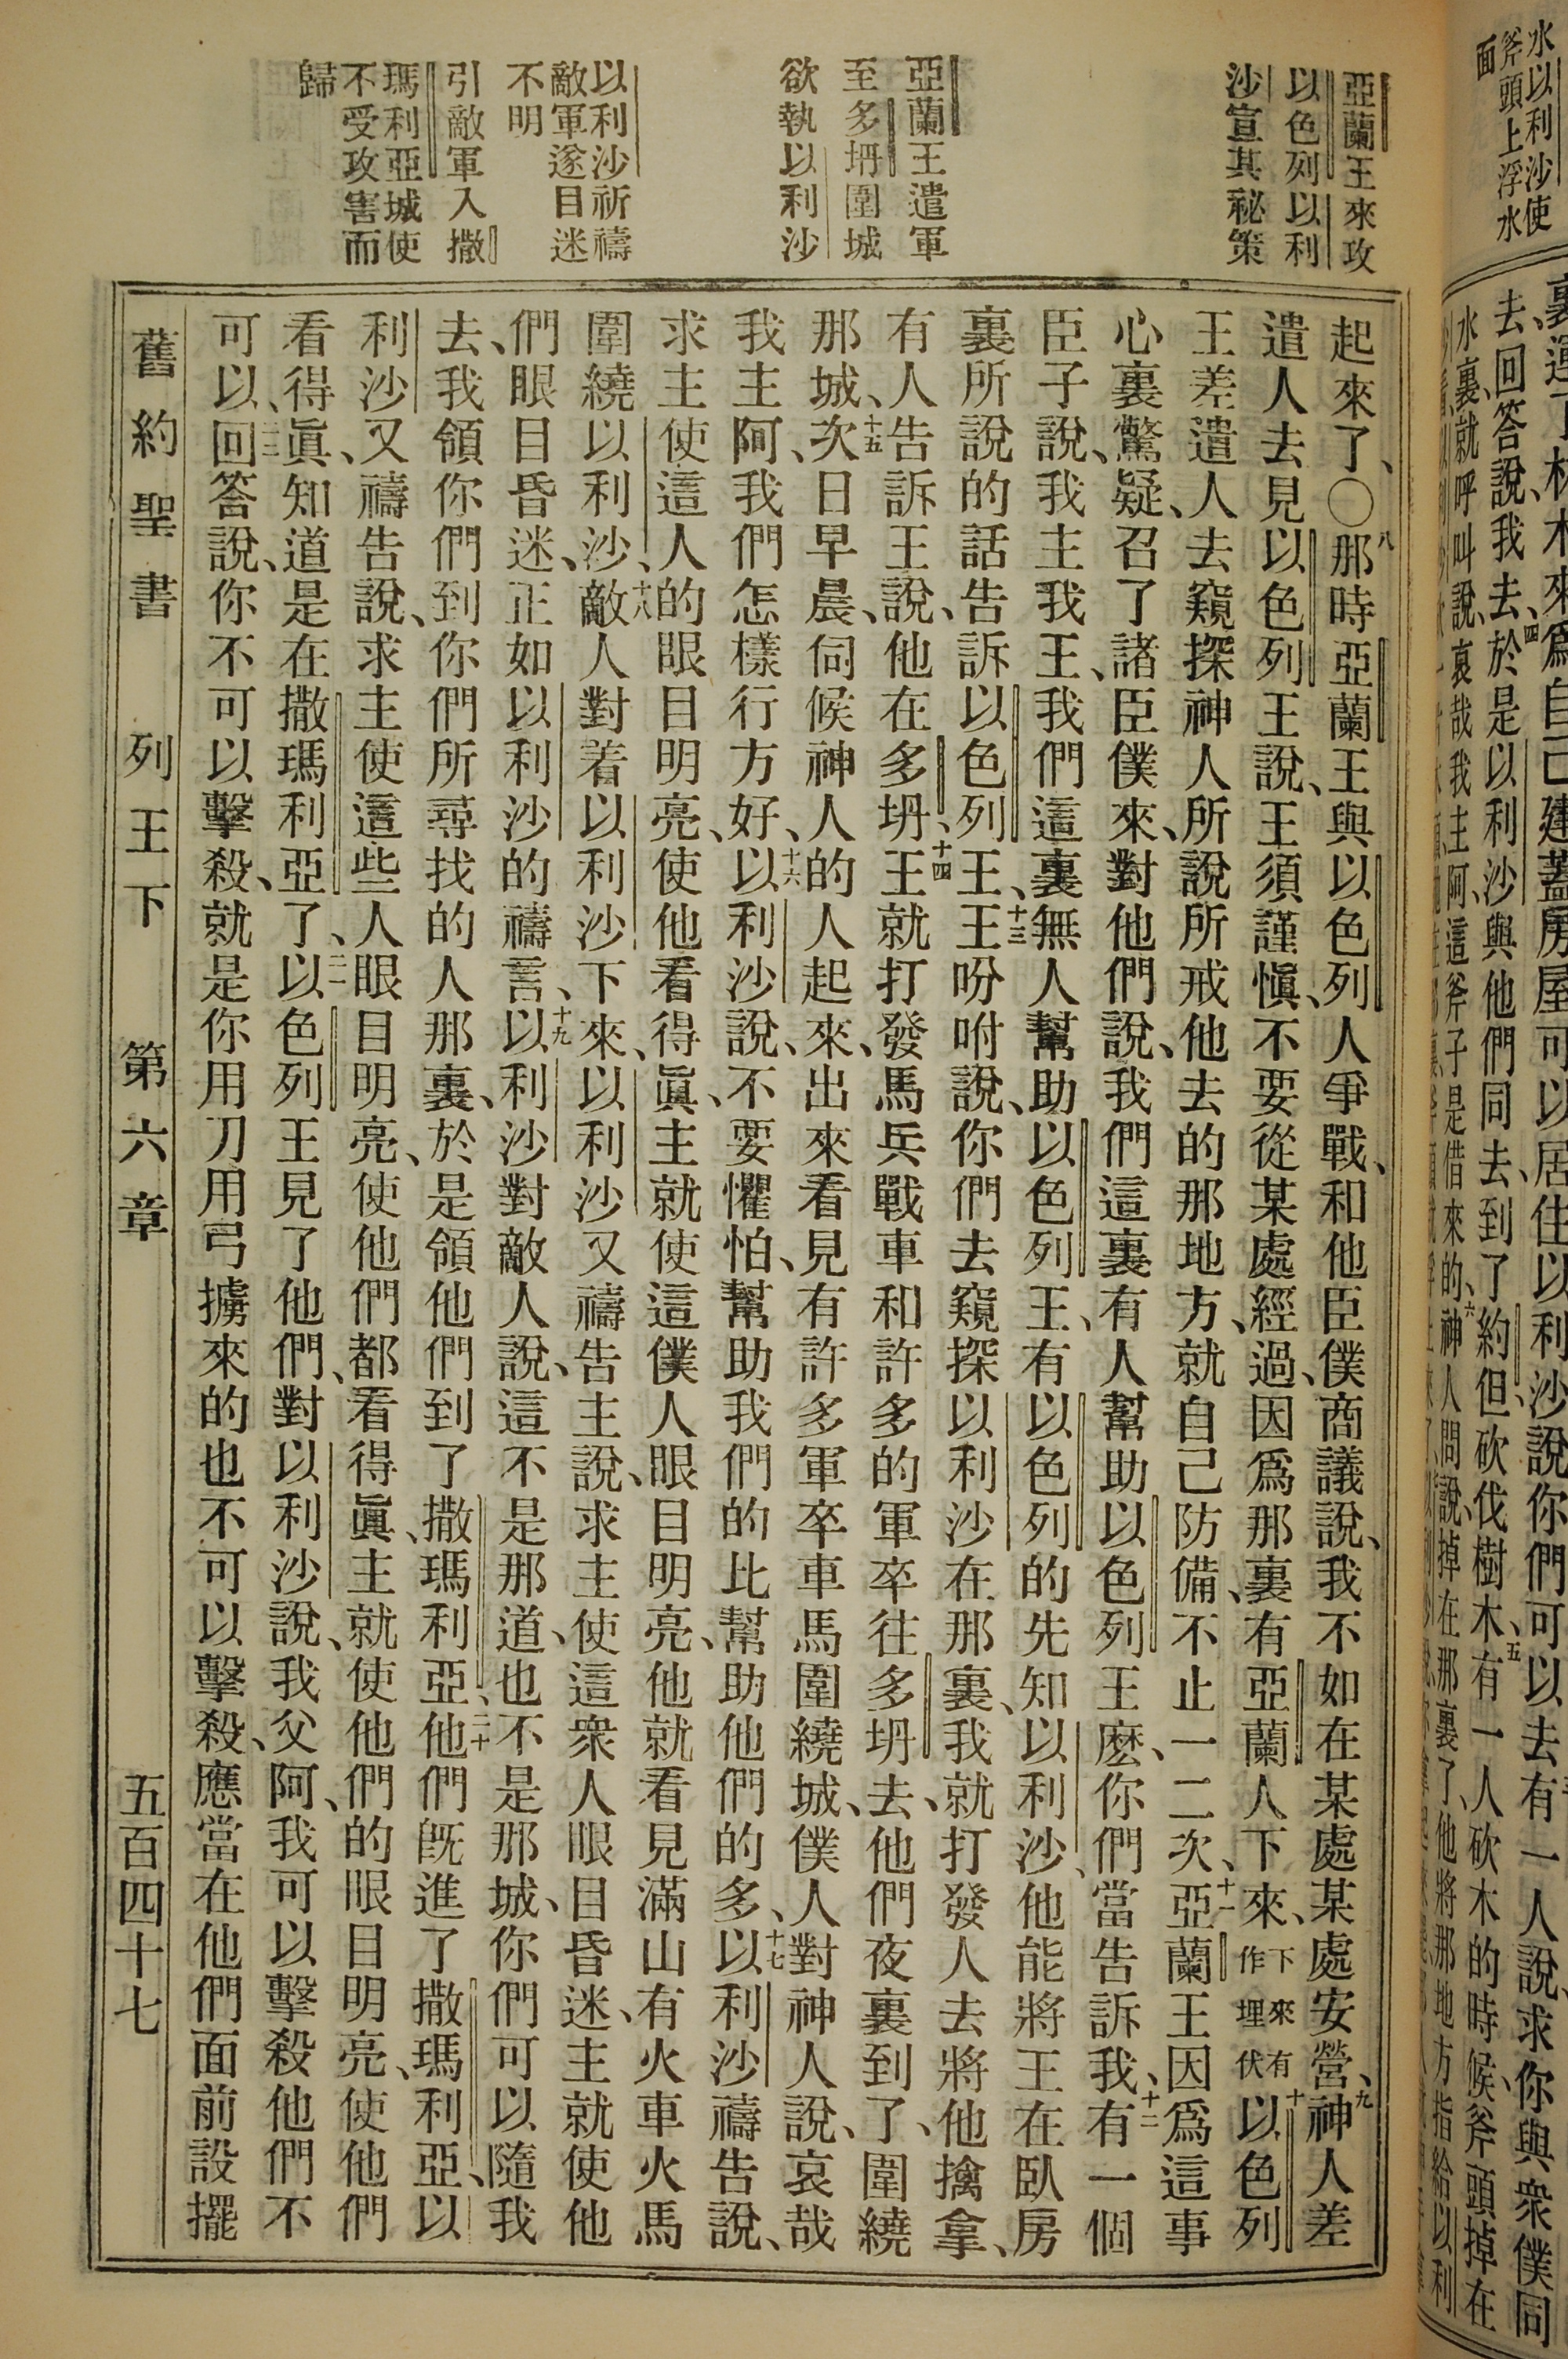 水以利沙使
斧頭上浮水
面
去、回答說、我去、四於是以利沙與他們同去、到了約但、砍伐樹木、五有一人砍木的時候、斧頭掉在
水裏、就呼叫說、哀哉我主阿、這斧子是借來的、六神人問說、掉在那裏了、他將那地方指給以利
亞蘭王來攻
以色列以利
沙宣其祕策
亞蘭王遣軍
至多坍圍城
欲執以利沙
以利沙祈禱
敵軍遂目迷
不明
引敵軍入撒
瑪利亞城使
不受攻害而
歸
起來了、〇八那時亞蘭王與以色列人爭戰、和他臣僕商議說、我不如在某處某處安營、九神人差
遣人去見以色列王說、王須謹愼、不要從某處經過、因爲那裏有亞蘭人下來、下來有作埋伏十以色列
王差遣人去窺探神人所說所戒他去的那地方、就自己防備、不止一二次、十一亞蘭王因爲這事
心裏驚疑、召了諸臣僕來、對他們說、我們這裏有人幫助以色列王麽、你們當告訴我、十二有一個
臣子說、我主我王、我們這裏無人幫助以色列王、有以色列的先知以利沙、他能將王在臥房
裏所說的話告訴以色列王、十三王吩咐說、你們去窺探以利沙在那裏、我就打發人去將他擒拿、
有人告訴王說、他在多坍、十四王就打發馬兵戰車和許多的軍卒往多坍去、他們夜裏到了、圍繞
那城、十五次日早晨、伺候神人的人起來、出來看見有許多軍卒車馬圍繞城、僕人對神人說、哀哉
我主阿、我們怎樣行方好、十六以利沙說、不要懼怕、幫助我們的比幫助他們的多、十七以利沙禱告說、
求主使這人的眼目明亮、使他看得眞、主就使這僕人眼目明亮、他就看見滿山有火車火馬
圍繞以利沙、十八敵人對着以利沙下來、以利沙又禱告主說、求主使這衆人眼目昏迷、主就使他
們眼目昏迷、正如以利沙的禱言、十九以利沙對敵人說、這不是那道、也不是那城、你們可以隨我
去、我領你們到你們所尋找的人那裏、於是領他們到了撒瑪利亞、二十他們旣進了撒瑪利亞、以
利沙又禱告說、求主使這些人眼目明亮、使他們都看得眞、主就使他們的眼目明亮、使他們
看得眞、知道是在撒瑪利亞了、二一以色列王見了他們、對以利沙說、我父阿、我可以擊殺他們不
可以、二二回答說、你不可以擊殺、就是你用刀用弓擄來的也不可以擊殺、應當在他們面前設擺
舊約聖書 列王下 第六章 五百四十七